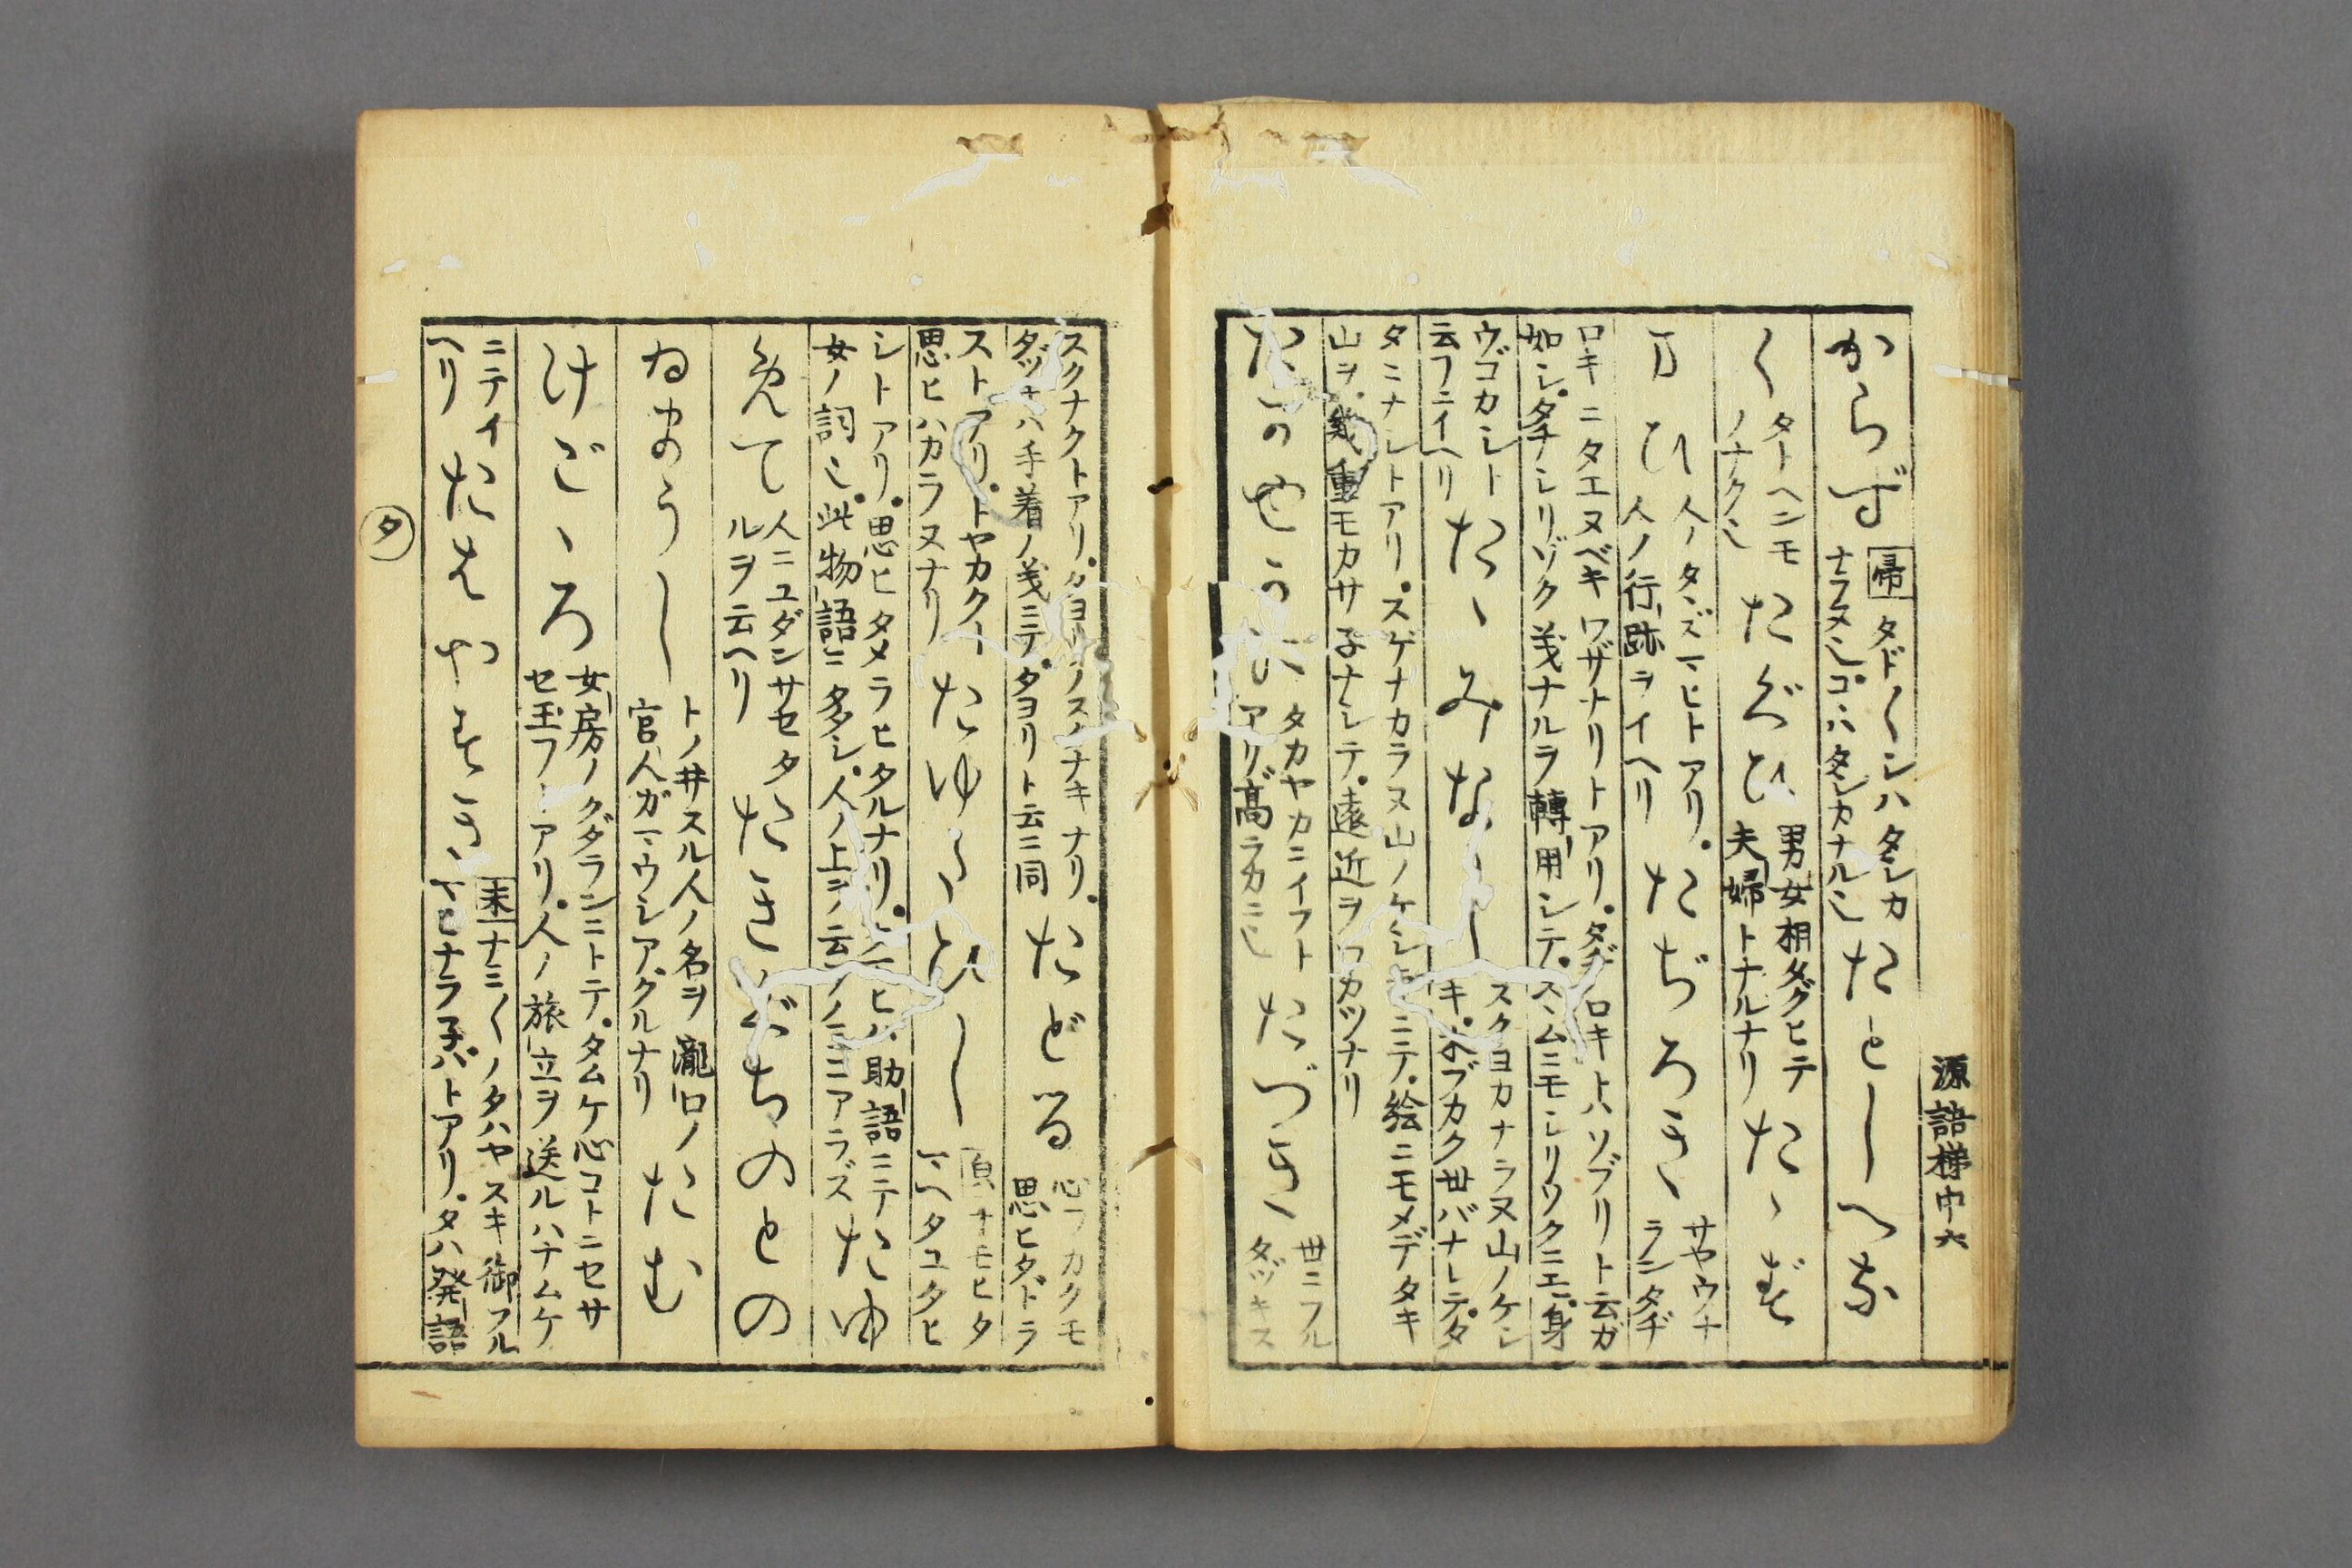 源語梯中六
からず 帚 タド〳〵シハタシカ
ナラヌ也コヽハタシカナル也 たとしへな
く タトヘンモ
ノナク也 たぐひ 男女相タグヒテ
夫婦トナルナリ たゝず
まひ 人ノタヽズマヒトアリ。
人ノ行跡ヲイヘリ たぢろき サヤウナ
ランタヂ
ロキニタエヌベキワザナリトアリ。タヂロキトハソブリト云ガ
如シ。タチシリゾク義ナルヲ轉用シテ。スヽムニモシリゾクニモ。身
ウゴカシト
云フニイヘリ たゝみなし スクヨカナラヌ山ノケシ
キ。木ブカク世バナレテ。タ
タミナシトアリ。スゲナカラヌ山ノケシキニテ。絵ニモメデタキ
山ヲ。幾重モカサ子ナシテ。遠近ヲワカツナリ
タカヤカニイフト
アリ。高ラカニ也 たづき 世ニフル
タヅキス
スクナクトアリ。タヨリノスクナキナリ。
タヅキハ手着ノ義ニテ。タヨリト云ニ同 たどる 心フカクモ
思ヒタドラ
ストアリ。トヤカクト
思ヒハカラヌナリ たゆたひし タユタヒ
シトアリ。思ヒタメラヒタルナリ。助語ニテ
女ノ詞也。此物語ニ多シ。人ノ上ヲノ云フノミニアラズ たゆ
めて 人ニユダンサセタ
ルヲ云ヘリ たきぐちのとの
ゐまうし トノ井スル人ノ名ヲ瀧口ノ
官人ガマウシアグルナリ たむ
けごゝろ 女房ノクダランニトテ。タムケ心コトニセサ
セ玉フトアリ。人ノ旅立ヲ送ルハナムケ
ニテイ
ヘリ たはやすき 末 ナミ〳〵ノタハヤスキ御フル
マヒナラ子バトアリ。タハ発語
タ